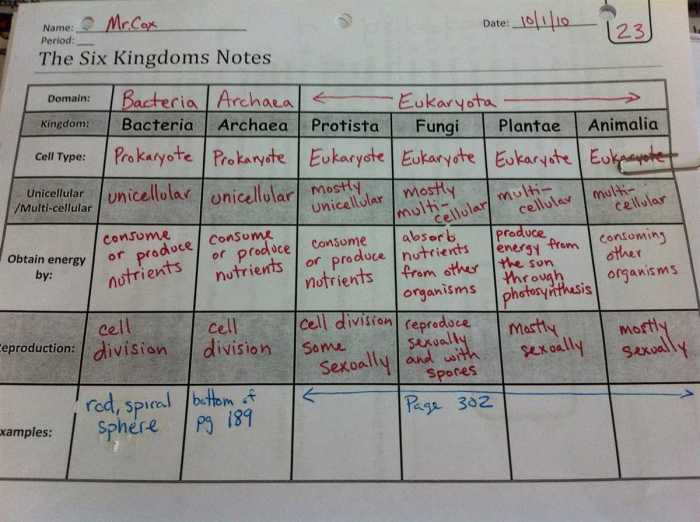 Name: Mr. Cox
Date: 10/1/10
23
Period:
The Six Kingdoms Notes
Domain: Bacteria Archaea Eukaryota
Kingdom: Bacteria Archaea Protista Fungi Plantae Animalia
Cell Type: Prokaryote Prokaryote Eukaryote Eukaryote Eukaryote Eukaryote
Unicellular
/Multi-cellular
unicellular
unicellular
mostly
unicellular
mostly
multi-
cellular
multi-
cellular
multi-
cellular
Obtain energy
by:
consume
or produce
nutrients
consume
or produce
nutrients
consume
or produce
nutrients
absorb
nutrients
from other
organisms
produce
energy from
the sun
through
photosynthesis
consuming
other
organisms
eproduction:
cell
division
cell
division
cell division
some
sexually
reproduce
sexually
and with
spores
mostly
sexually
mostly
sexually
xamples:
rod, spiral
sphere
bottom of
pg 189
Page 302